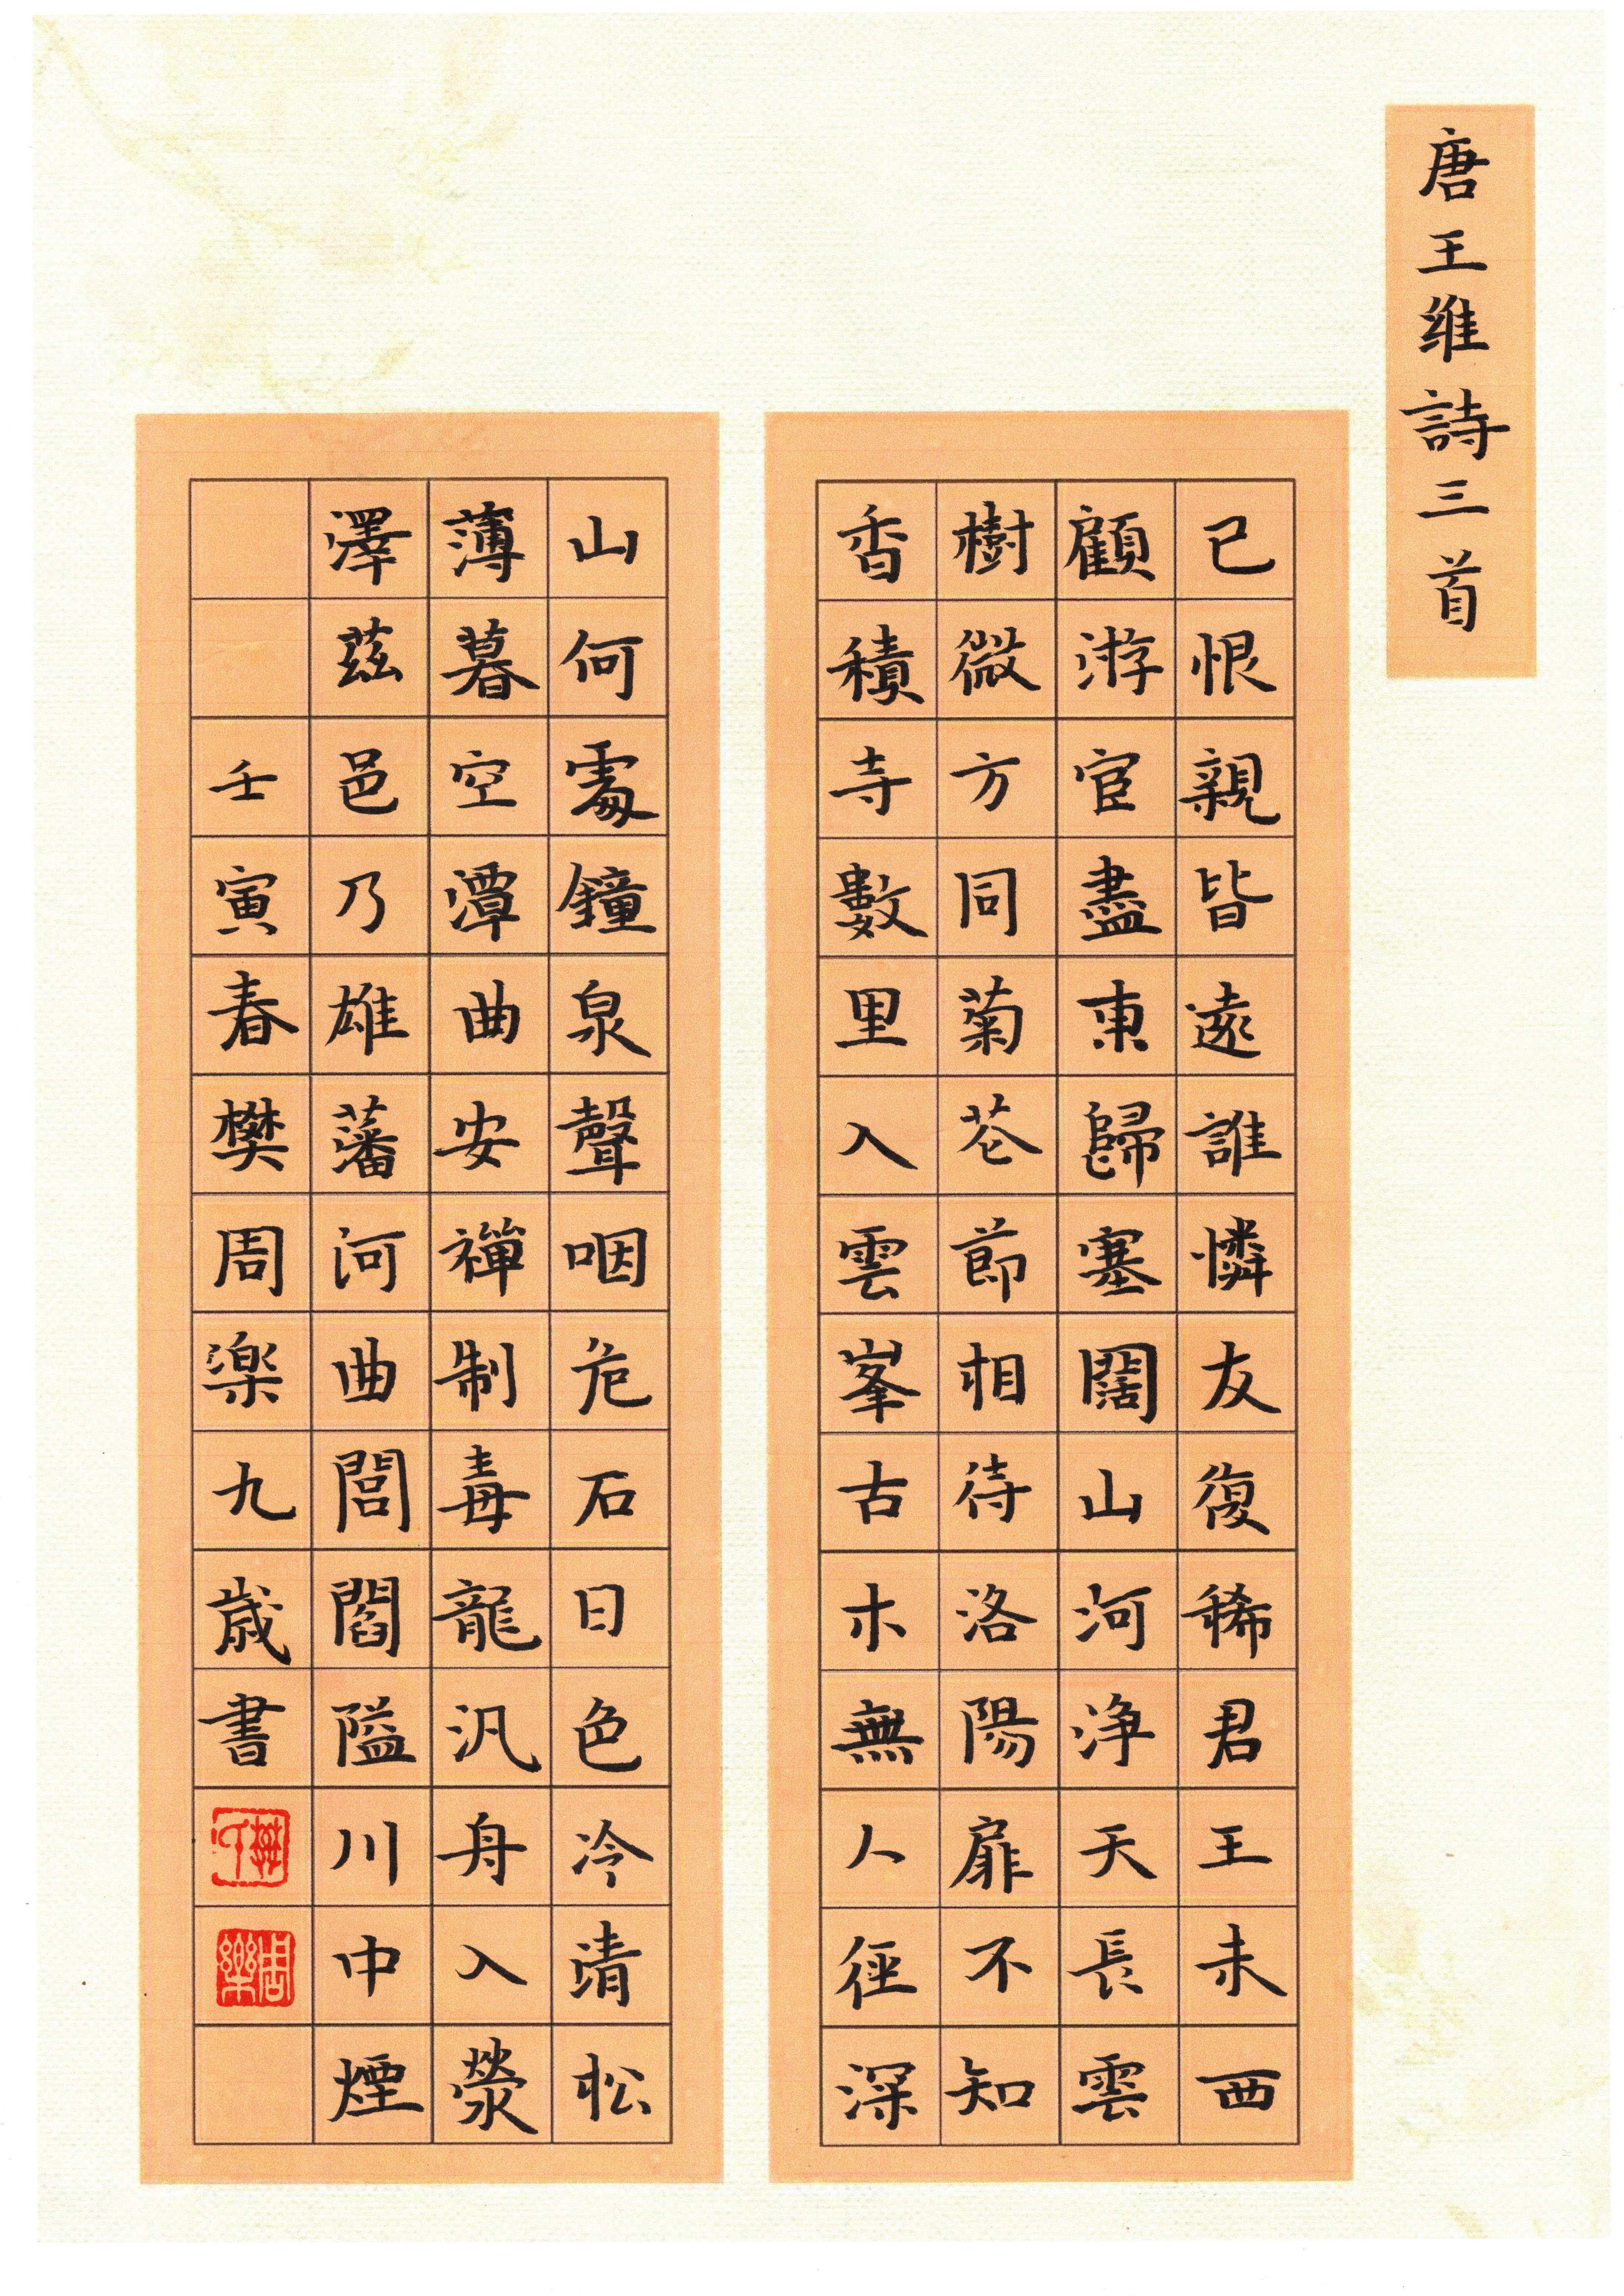 唐王维詩三首
已恨親皆遠誰憐友復稀君王未西
顧游宦盡東歸塞闊山河浄天長雲
樹微方同菊花節相待洛陽扉不知
香積寺數里入雲峯古木無人徑深
山何處鐘泉聲咽危石日色冷靖松
薄暮空潭曲安禪制毒龍汎舟入滎
澤兹邑乃雄藩河曲閭閻隘川中煙
壬寅春樊周楽九歳書
周樂